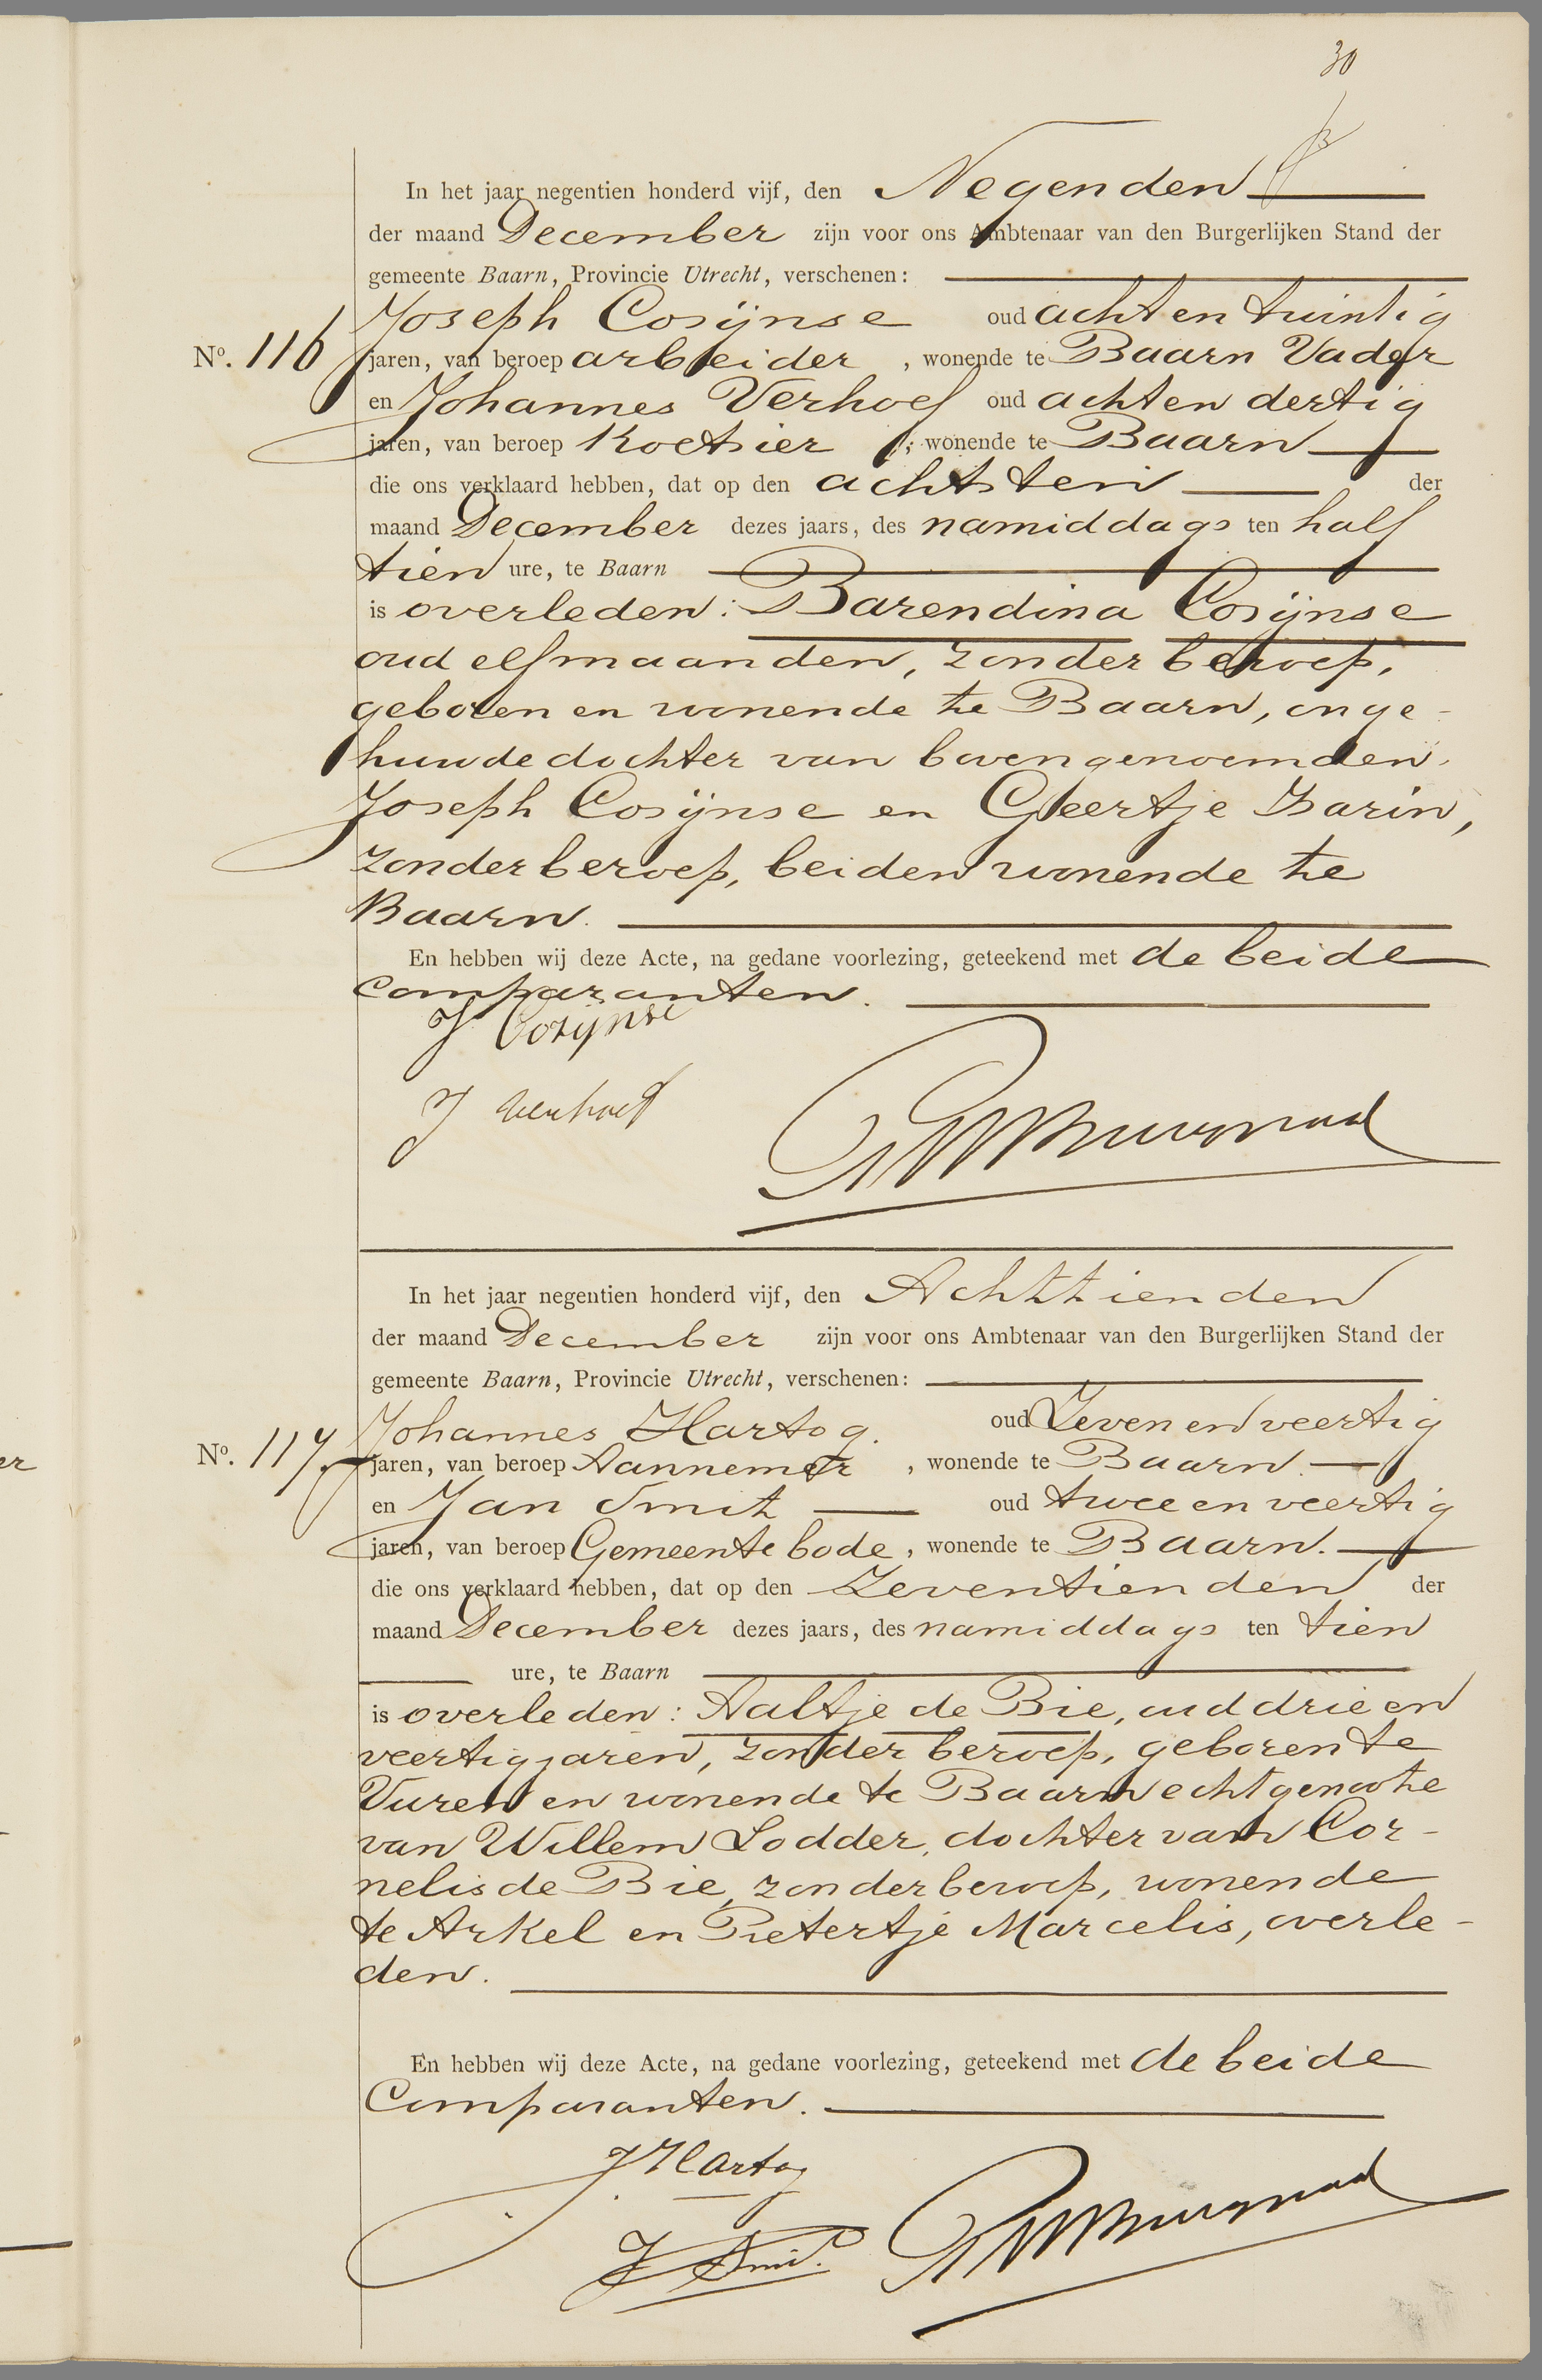 30
In het jaar negentien honderd vijf, den Negenden
der maand December zijn voor ons Ambtenaar van den Burgerlijken Stand der
gemeente Baarn, Provincie Utrecht, verschenen:
Joseph Cosijnse oud acht en twintig
No. 116 jaren, van beroep arbeider, wonende te Baarn Vader
en Johannes Verhoef oud acht en dertig
jaren, van beroep Koetsier, wonende te Baarn
die ons verklaard hebben, dat op den achtsten der
maand December dezes jaars, des namiddags ten half
tien ure, te Baarn
is overleden: Barendina Cosijnse
oud elf maanden, zonder beroep,
geboren en wonende te Baarn, onge-
huwde dochter van bovengenoemden
Joseph Cosijnse en Geertje Barin,
zonder beroep, beiden wonende te
Baarn.
En hebben wij deze Acte, na gedane voorlezing, geteekend met de beide
comparanten.
J Cosijnse
J Verhoef
In het jaar negentien honderd vijf, den Achttienden
der maand December zijn voor ons Ambtenaar van den Burgerlijken Stand der
gemeente Baarn, Provincie Utrecht, verschenen:
Johannes Hartog. oud Zeven en veertig
No. 117. jaren, van beroep Aannemer, wonende te Baarn.
en Jan Smit oud twee en veertig
jaren, van beroep Gemeentebode, wonende te Baarn.
die ons verklaard hebben, dat op den Zeventienden der
maand December dezes jaars, des namiddags ten tien
ure, te Baarn
is overleden: Aaltje de Bie, oud drie en
veertig jaren, zonder beroep, geboren te
Vuren en wonende te Baarn echtgenoote
van Willem Lodder, dochter van Cor-
nelis de Bie, zonder beroep, wonende
te Arkel en Pietertje Marcelis, overle-
den.
En hebben wij deze Acte, na gedane voorlezing, geteekend met de beide
Comparanten.
J Hartog
J Smit.